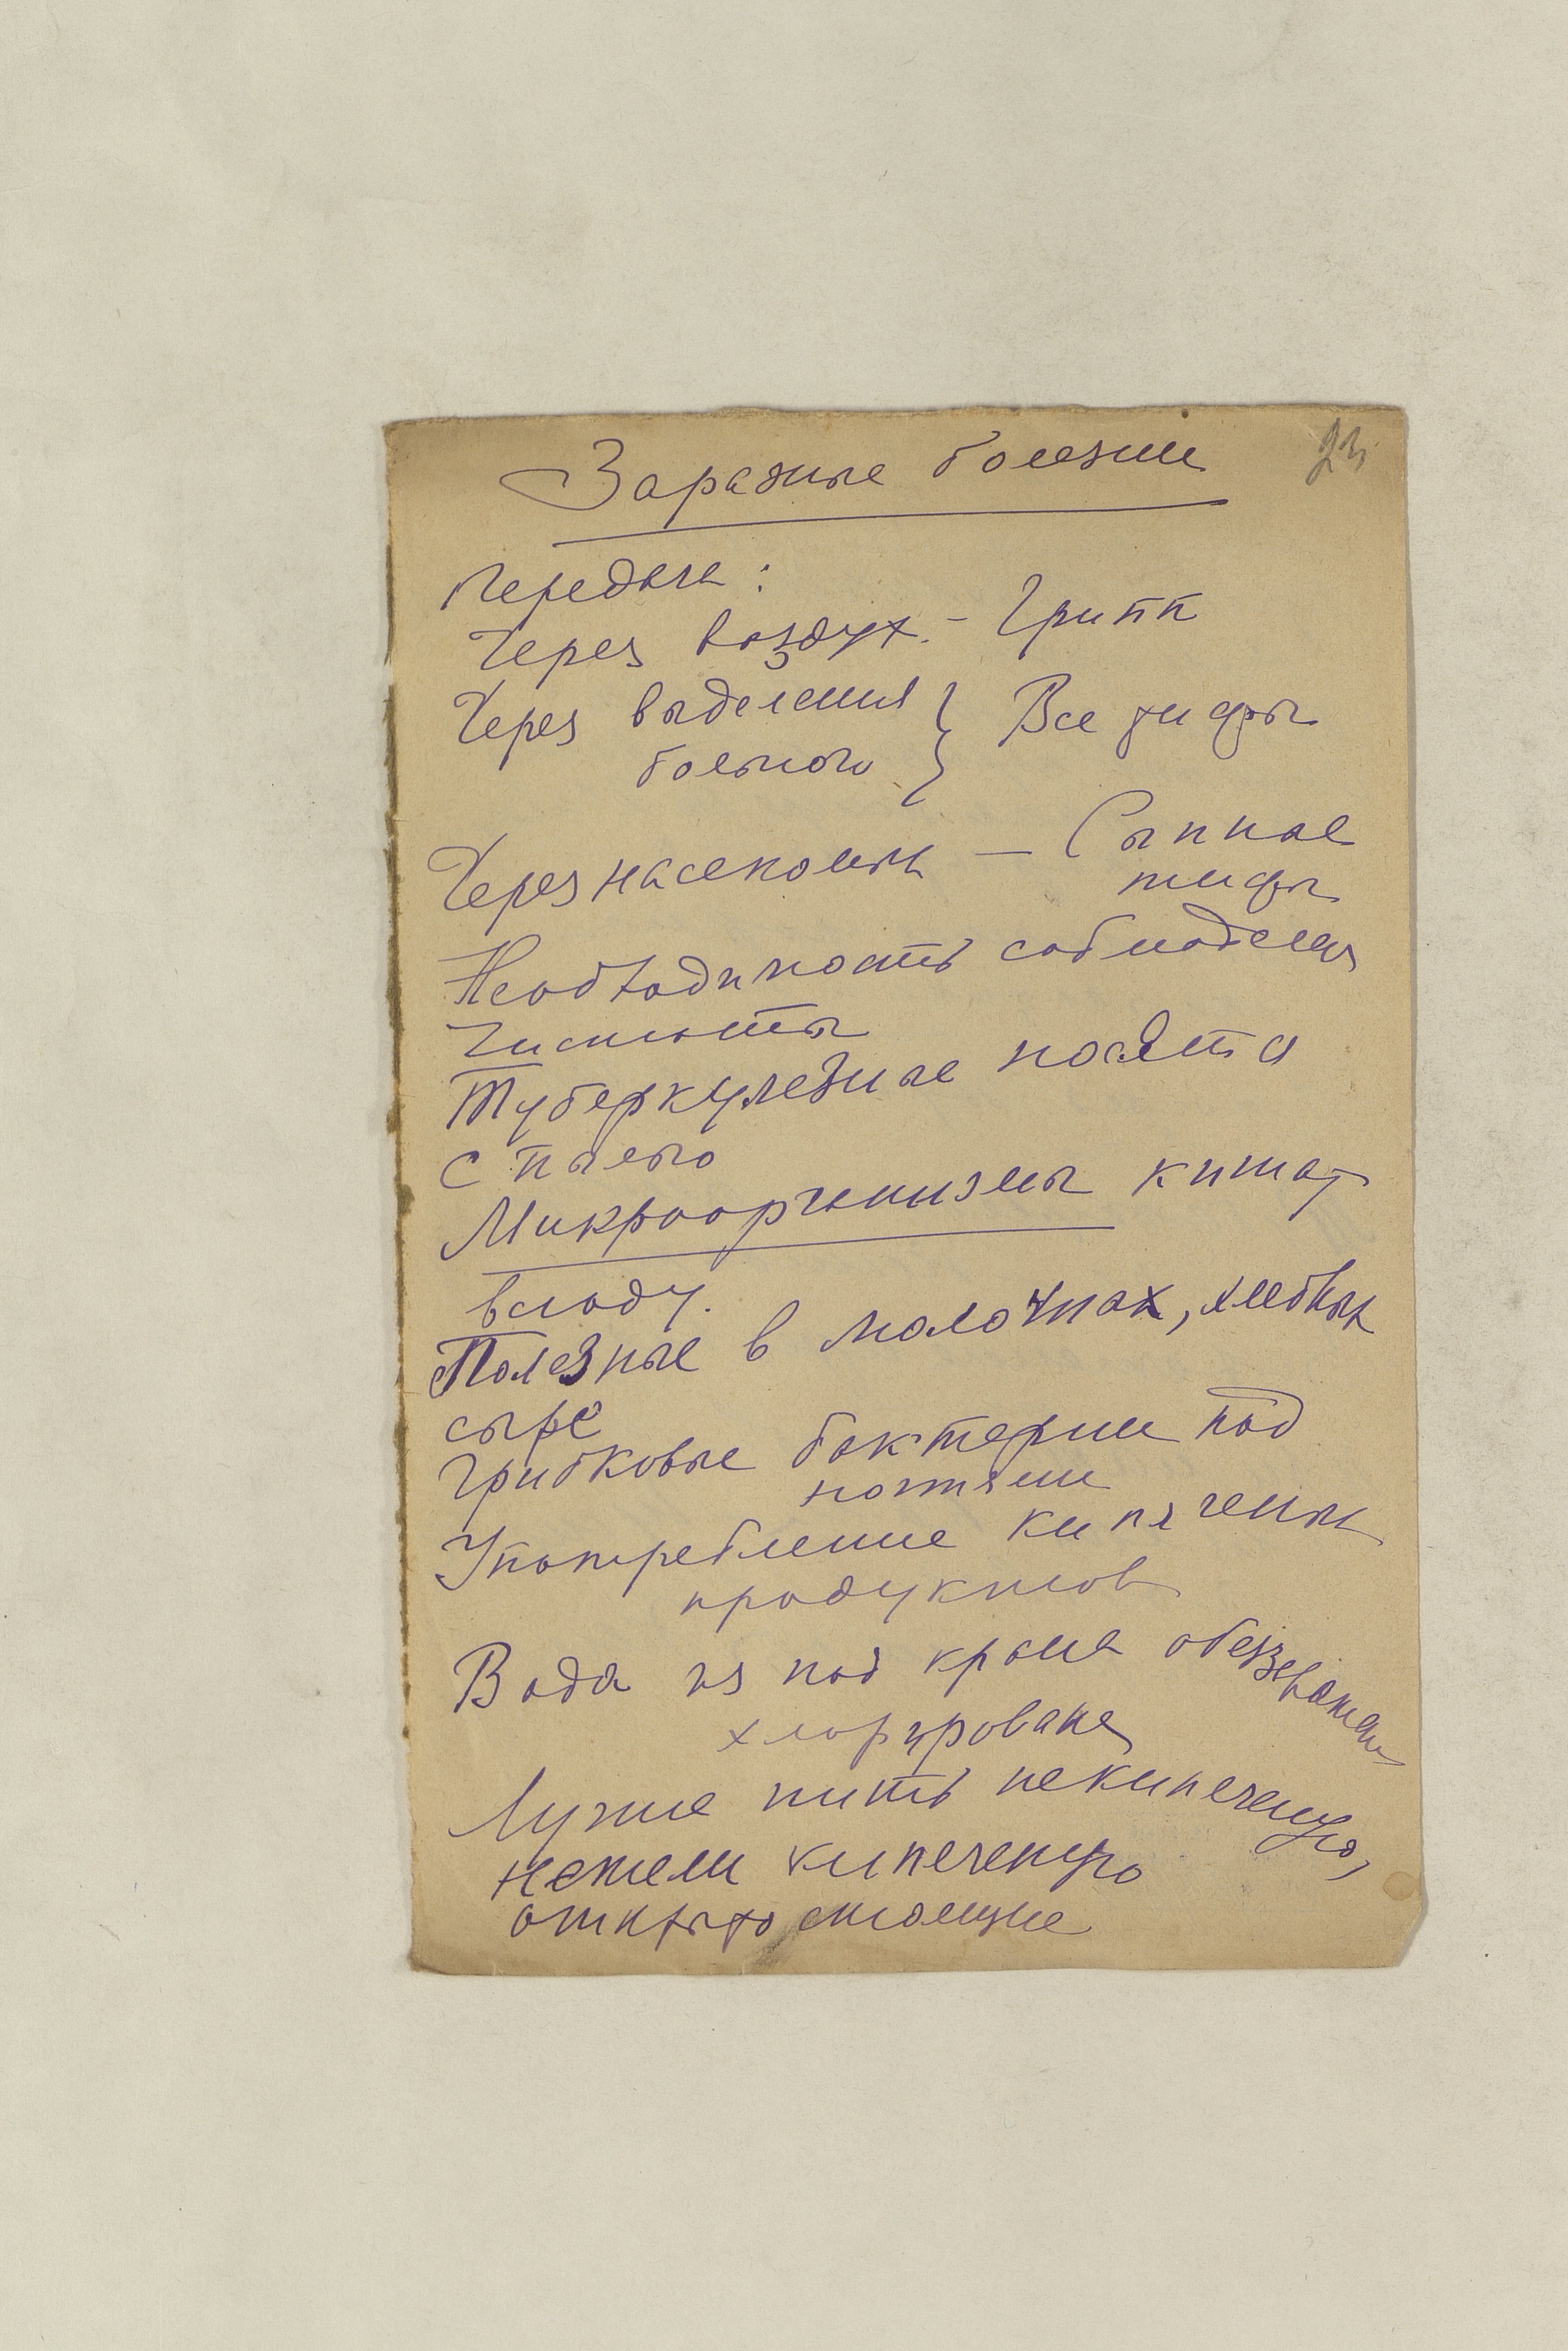 Заразные болезни
23
Передача:
Через воздух. - Грипп
Через выделения } Все тифы
больного
Через насекомых — Сыпные
тифы
Необходимость соблюдения
чистоты
Туберкулезные носятся
с пылью
Микроорганизмы кишат
всюду.
Полезные в молочных, хлебных
сыре
Грибковые бактерии под
ногтями
Употребление кипячених
продуктов
Вода из под крана обеззаражена
хлорирована
Лучше пить некипеченую,
нежели кипеченую
открыто стоящую